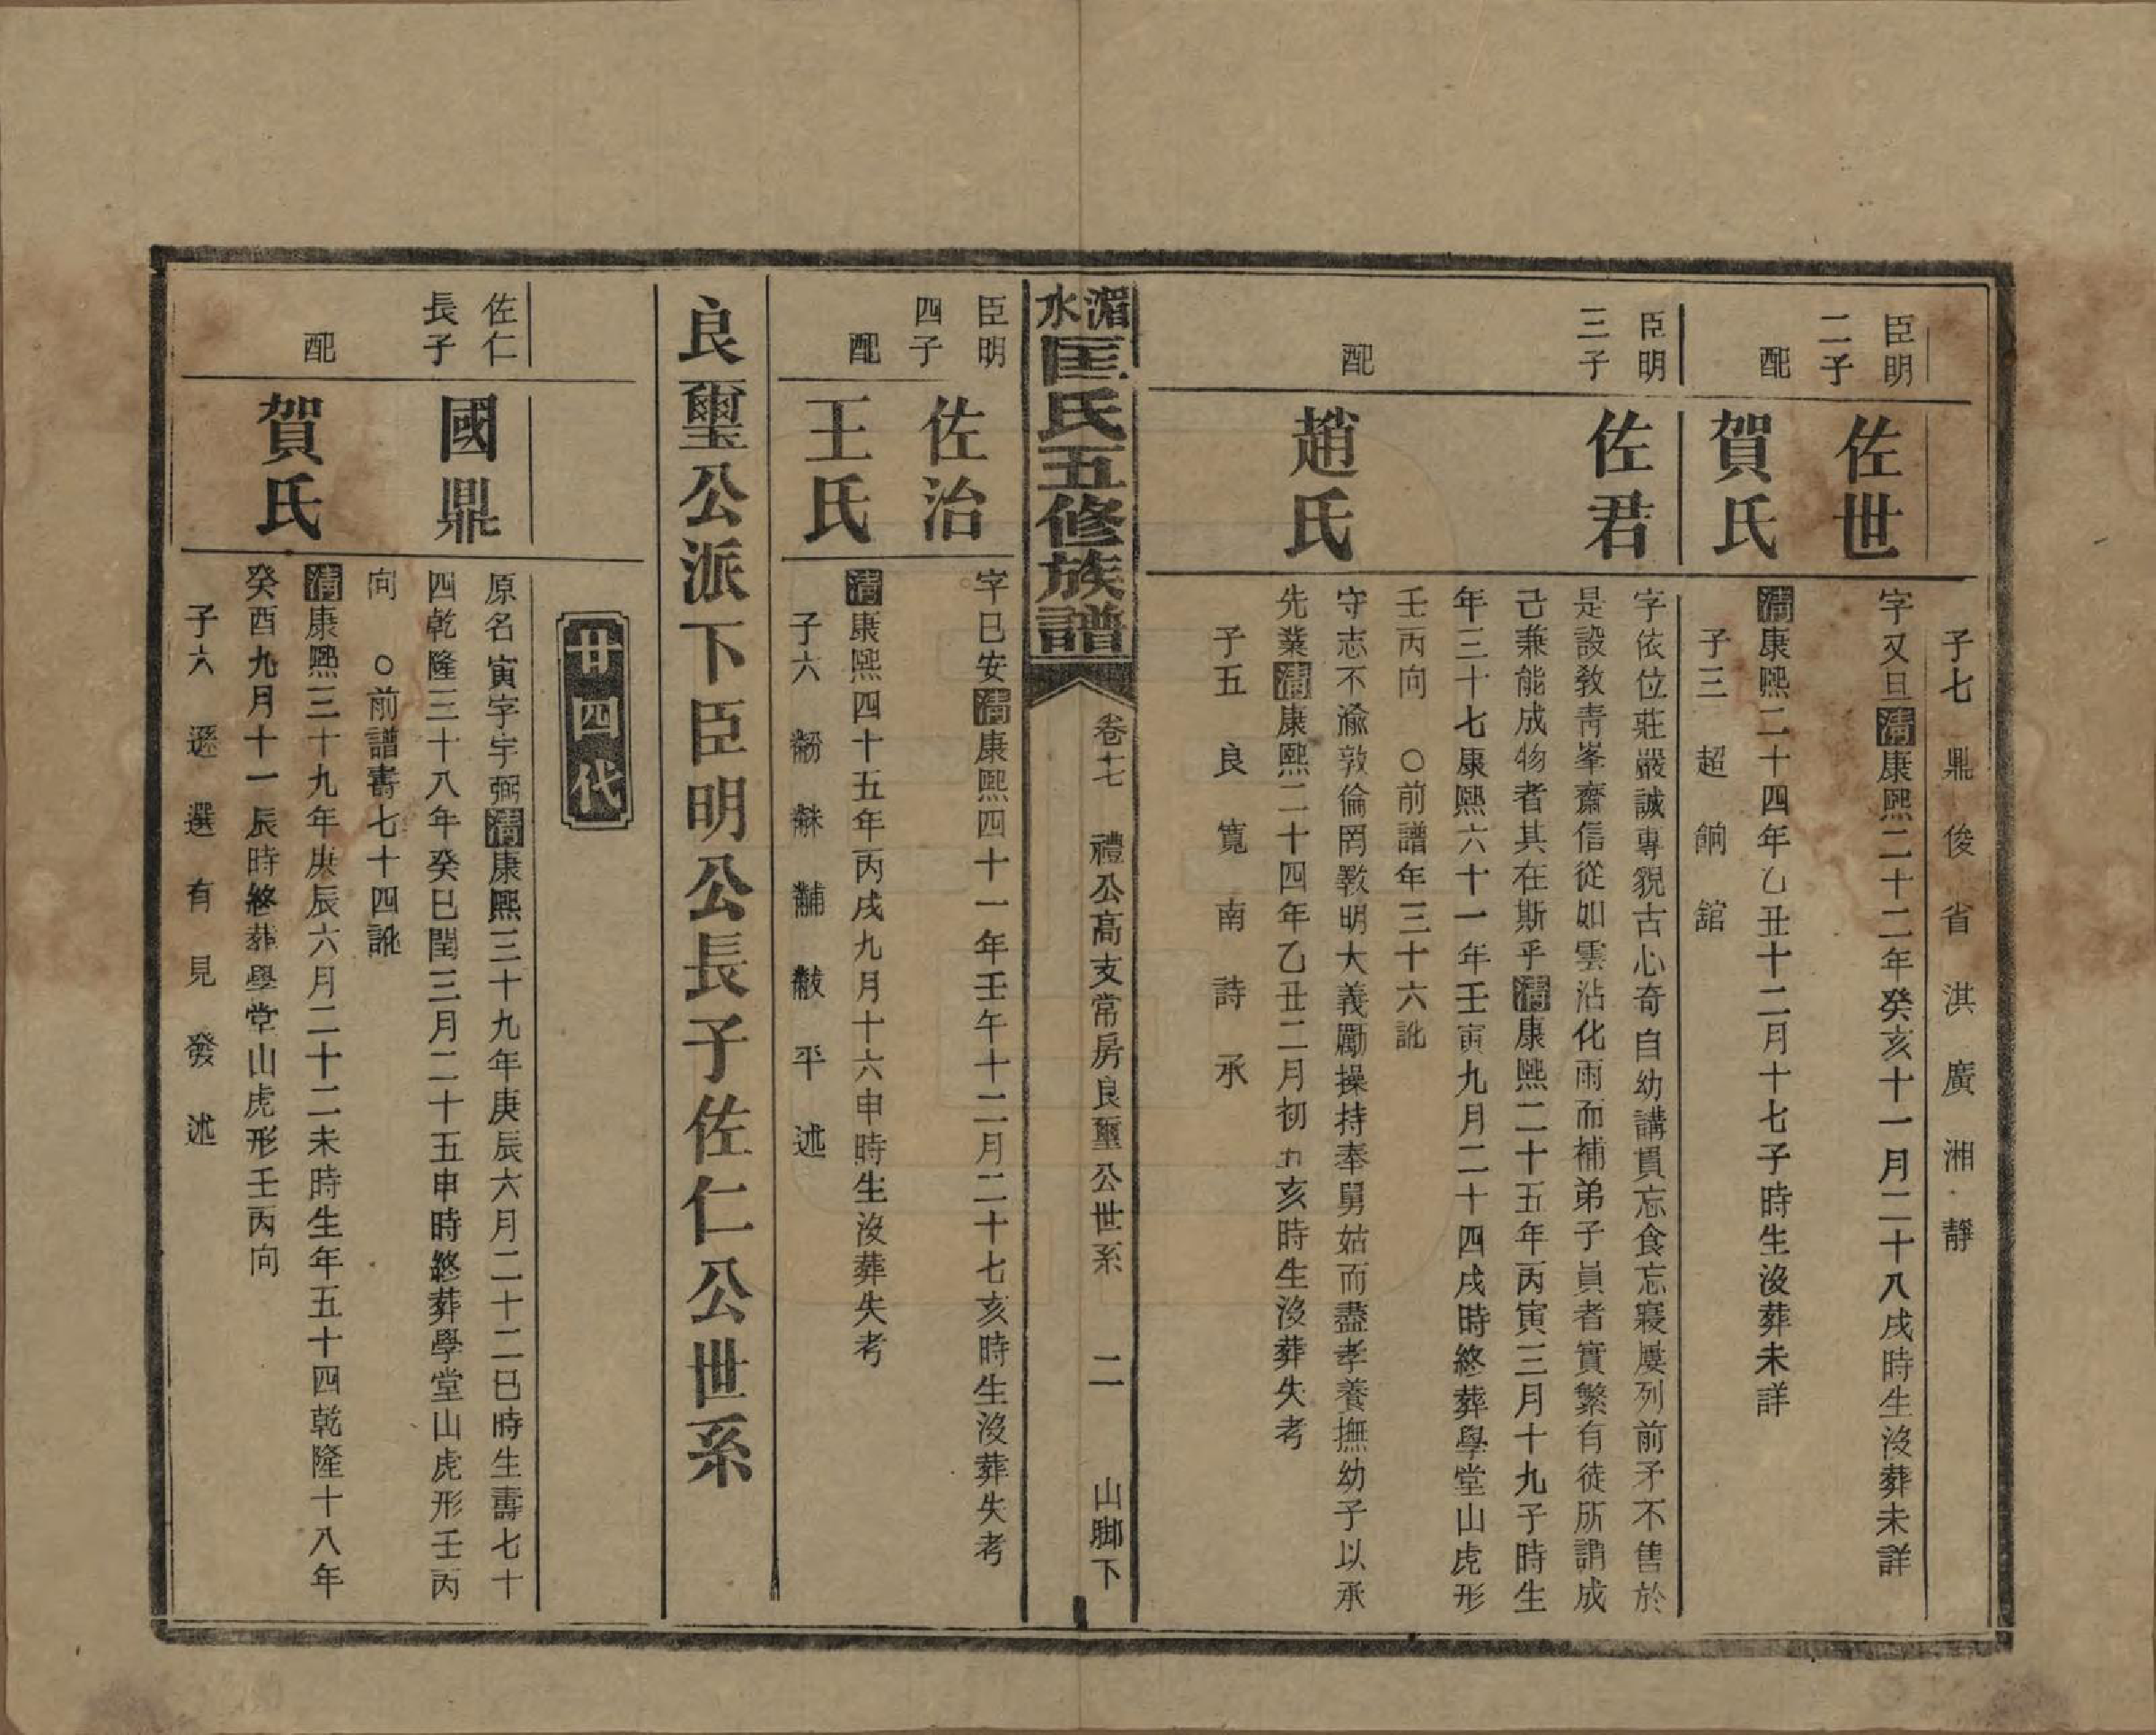 子七 鼎 俊 省 淇 廣 湘 靜
臣明
二子
佐世
字又旦清康熙二十二年癸亥十一月二十八戌時生沒葬未詳
配
賀氏
清康熙二十四年乙丑十二月十七子時生沒葬未詳
子三 超 餉 舘
臣明
三子
佐君
字依位莊嚴誠專貌古心奇自幼講貫忘食忘寢屢列前矛不售於
是設教靑峯齋信從如雲沾化雨而補弟子員者實繁有徒所謂成
己兼能成物者其在斯乎清康熙二十五年丙寅三月十九子時生
年三十七康熙六十一年壬寅九月二十四戌時終葬學堂山虎形
壬丙向 ○前譜年三十六訛
配
趙氏
守志不渝敦倫罔斁明大義勵操持奉舅姑而盡孝養撫幼子以承
先業清康熙二十四年乙丑二月初五亥時生沒葬失考
子五 良 寬 南 詩 承
湄水匡氏五修族譜
卷十七 禮公高支常房良璽公世系 二 山脚下
臣明
四子
佐治
字巳安清康熙四十一年壬午十二月二十七亥時生沒葬失考
配
王氏
清康熙四十五年丙戌九月十六申時生沒葬失考
子六 黼 黻 平 述
良璽公派下臣明公長子佐仁公世系
廿四代
佐仁
長子
國鼎
原名寅字宇弼清康熙三十九年庚辰六月二十二巳時生壽七十
四乾隆三十八年癸巳閏三月二十五申時終葬學堂山虎形壬丙
向 ○前譜書七十四訛
配
賀氏
清康熙三十九年庚辰六月二十二未時生年五十四乾隆十八年
癸酉九月十一辰時終葬學堂山虎形壬丙向
子六 遜 選 有 見 發 述